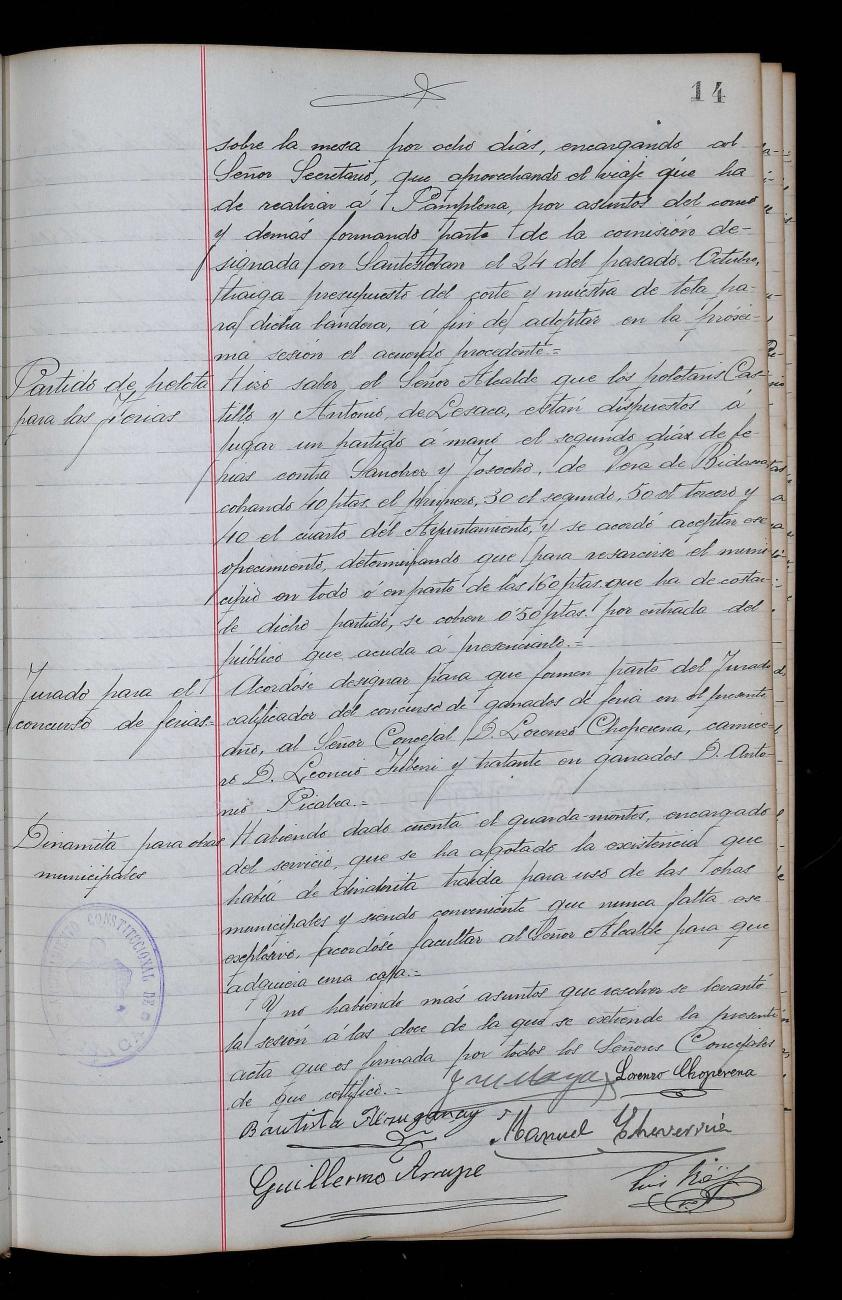 14
sobre la mesa por ocho días, encargando al
Señor Secretario, que aprovechando el viaje que ha
de realizar á Pamplona, por asuntos del
y demás formando parte de la comisión de-
signada en Santesteban el 24 del pasado Octubre,
traiga presupuesto del corte y muestra de tela pa-
ra dicha bandera, á fin de adoptar en la próxi-
ma sesión el acuerdo procedente.=
Partido de pelota
para las Ferias
Hizo saber el Señor Alcalde que los pelotaris Cas-
tillo y Antonio, de Lesaca, están dispuestos á
jugar un partido á mano el segundo días de fe-
rias contra Sanchez y Josecho, de Vera de Bidasoa
cobrando 40 ptas. el primero, 30 el segundo, 50 el tercero y
40 el cuarto del Ayuntamiento, y se acordó aceptar ese
ofrecimiento, determinando que para resarcirse el muni
cipio en todo ó en parte de las 160 ptas. que ha de costar-
le dicho partido, se cobren 0'50 ptas. por entrada del
público que acuda á presenciarlo.=
Jurado para el
concurso de ferias=
Acordóse designar para que formen parte del Jurado
calificador del concurso de ganados de feria en el presente
año, al Señor Concejal D. Lorenzo Choperena, carnice-
ro D. Leoncio y tratante en ganados D. Anto-
nio Picabea.=
Dinamita para obras
municipales
Habiendo dado cuenta el guarda-montes, encargado
del servicio, que se ha agotado la existencia que
había de dinamita traída para uso de las obras
municipales y siendo conveniente que nunca falta ese
explosivo, acordóse facultar al Señor Alcalde para que
adquiera una caja.=
Y no habiendo más asuntos que resolver se levantó
la sesión á las doce de la que se extiende la presente
acta que es firmada por todos los Señores Concejales
de que certifico.=
Lorenzo Choperena
Bautista
Manuel Echeverria
Guillermo Arrupe
Luis
AYUNTAMIENTO CONSTITUCIONAL DE